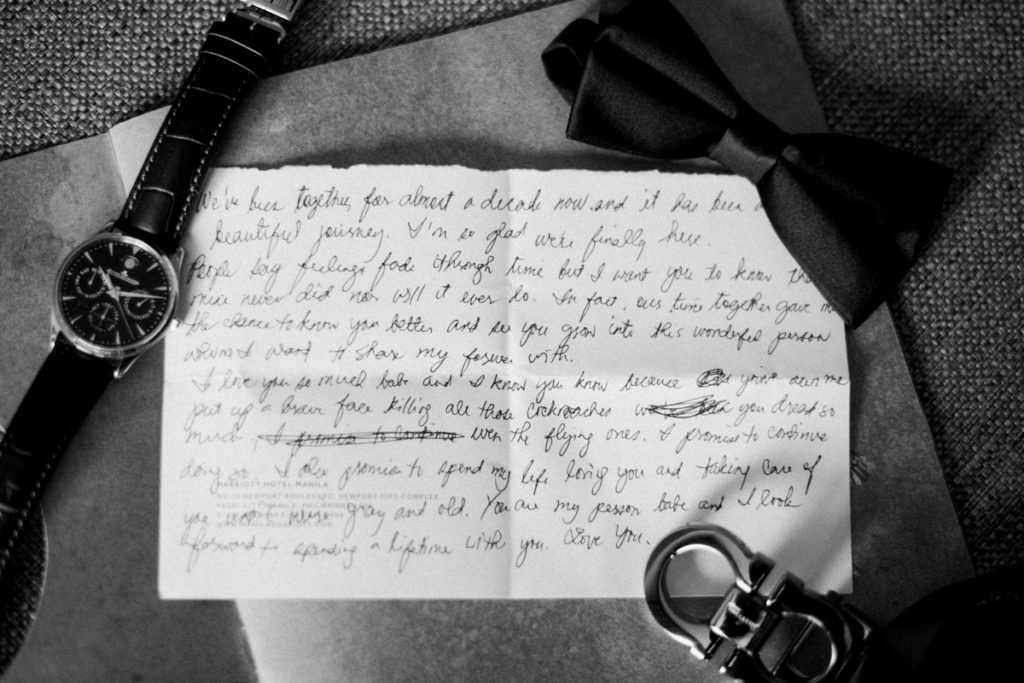 We've been together for almost a decade now and it has been a
beautiful journey. I'm so glad we're finally here.
People say feelings fade through time but I want you to know
mine never did nor will it ever do. In fact, our time together gave
the chance to know you better and see you grow into this wonderful person
I want to share my forever with.
I love you so much babe and I know you know because you've seen me
put up a brave face killing all those cockroaches you dread so
much, I promise to continue even the flying ones. I promise to continue
doing so. I also promise to spend my life loving you and taking care of
MARRIOTT HOTEL MANILA
NO. 10 NEWPORT BOULEVARD, NEWPORT CITY COMPLEX
you gray and old. You are my person babe and I look
forward to spending a lifetime with you. Love You.